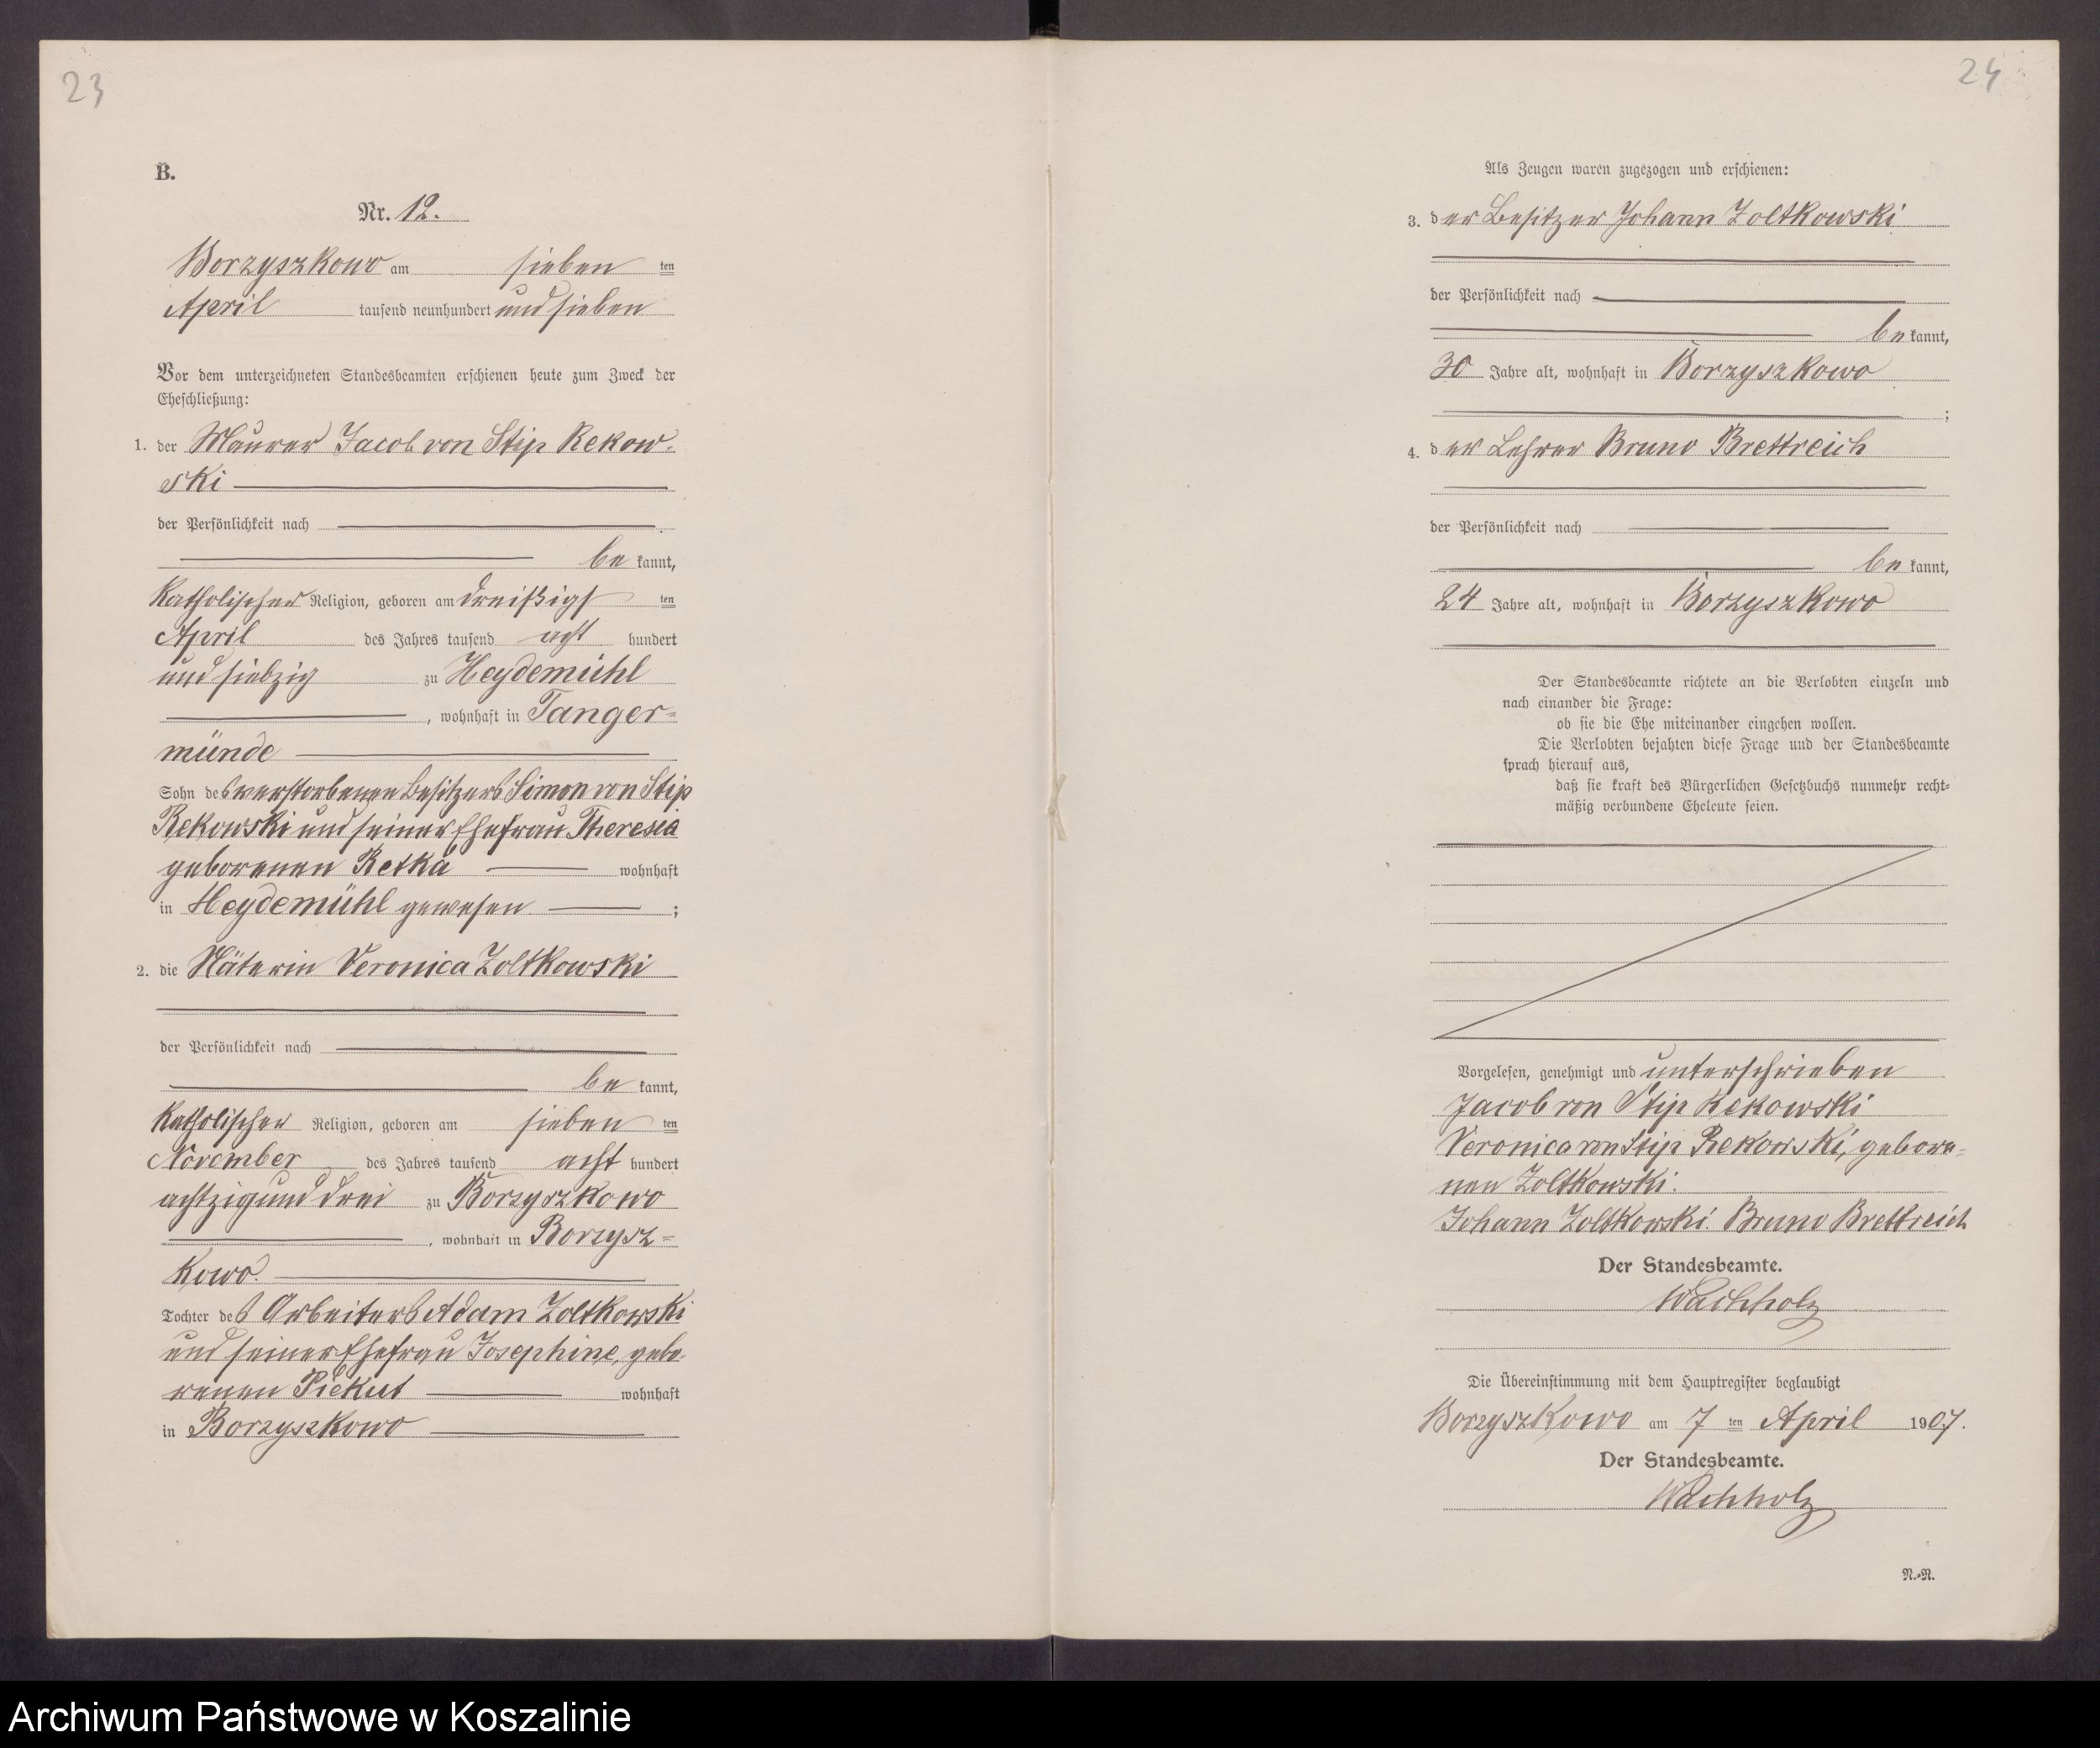 23
B.
Nr. 12.
Borzyszkowo am sieben ten
April tausend neunhundert und sieben
Vor dem unterzeichneten Standesbeamten erschienen heute zum Zweck der
Eheschließung:
1. der Maurer Jacob von Stip Rekow-
ski
der Persönlichkeit nach
be kannt,
Katholischer Religion, geboren am dreißigs ten
April des Jahres tausend acht hundert
und siebzig zu Heydemühl
, wohnhaft in Tanger=
münde
Sohn des verstorbenen Besitzers Simon von Stip
Rekowski und seiner Ehefrau Theresia
geborenen Retka wohnhaft
in Heydemühl gewesen ;
2. die Näterin Veronica Zoltkowski
der Persönlichkeit nach
be kannt,
Katholischer Religion, geboren am sieben ten
November des Jahres tausend acht hundert
achtzig und drei zu Borzyszkowo
, wohnhaft in Borzysz=
kowo.
Tochter des Arbeiters Adam Zoltkowski
und seiner Ehefrau Josephine, gebo-
renen Piekut wohnhaft
in Borzyszkowo
24
Als Zeugen waren zugezogen und erschienen:
3. der Besitzer Johann Zoltkowski
der Persönlichkeit nach
be kannt,
30 Jahre alt, wohnhaft in Borzyszkowo
;
4. der Lehrer Bruno Brettreich
der Persönlichkeit nach
be kannt,
24 Jahre alt, wohnhaft in Borzyszkowo
Der Standesbeamte richtete an die Verlobten einzeln und
nach einander die Frage:
ob sie die Ehe miteinander eingehen wollen.
Die Verlobten bejahten diese Frage und der Standesbeamte
sprach hierauf aus,
daß sie kraft des Bürgerlichen Gesetzbuchs nunmehr recht=
mäßig verbundene Eheleute seien.
Vorgelesen, genehmigt und unterschrieben
Jacob von Stip Rekowski
Veronica von Stip Rekowski, gebore=
nen Zoltkowski.
Johann Zoltkowski. Bruno Brettreich
Der Standesbeamte.
Wachholz
Die Übereinstimmung mit dem Hauptregister beglaubigt
Borzyszkowo am 7 ten April 1907.
Der Standesbeamte.
Wachholz
N.-N.
Archiwum Państwowe w Koszalinie